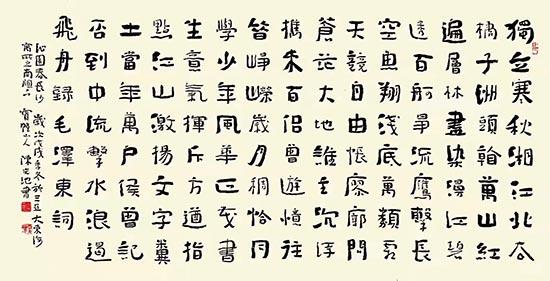 獨立寒秋湘江北去
橘子洲頭看萬山紅
遍層林盡染漫江碧
透百舸爭流鷹擊長
空魚翔淺底萬類霜
天競自由悵廖廓問
蒼茫大地誰主沉浮
攜來百侶曾遊憶往
昔崢嶸歲月稠恰同
學少年風華正茂書
生意氣揮斥方遒指
點江山激揚文字糞
土當年萬戶侯曾記
否到中流擊水浪遏
飛舟錄毛澤東詞
沁園春長沙 歲次戊戌年冬於三亞大東海